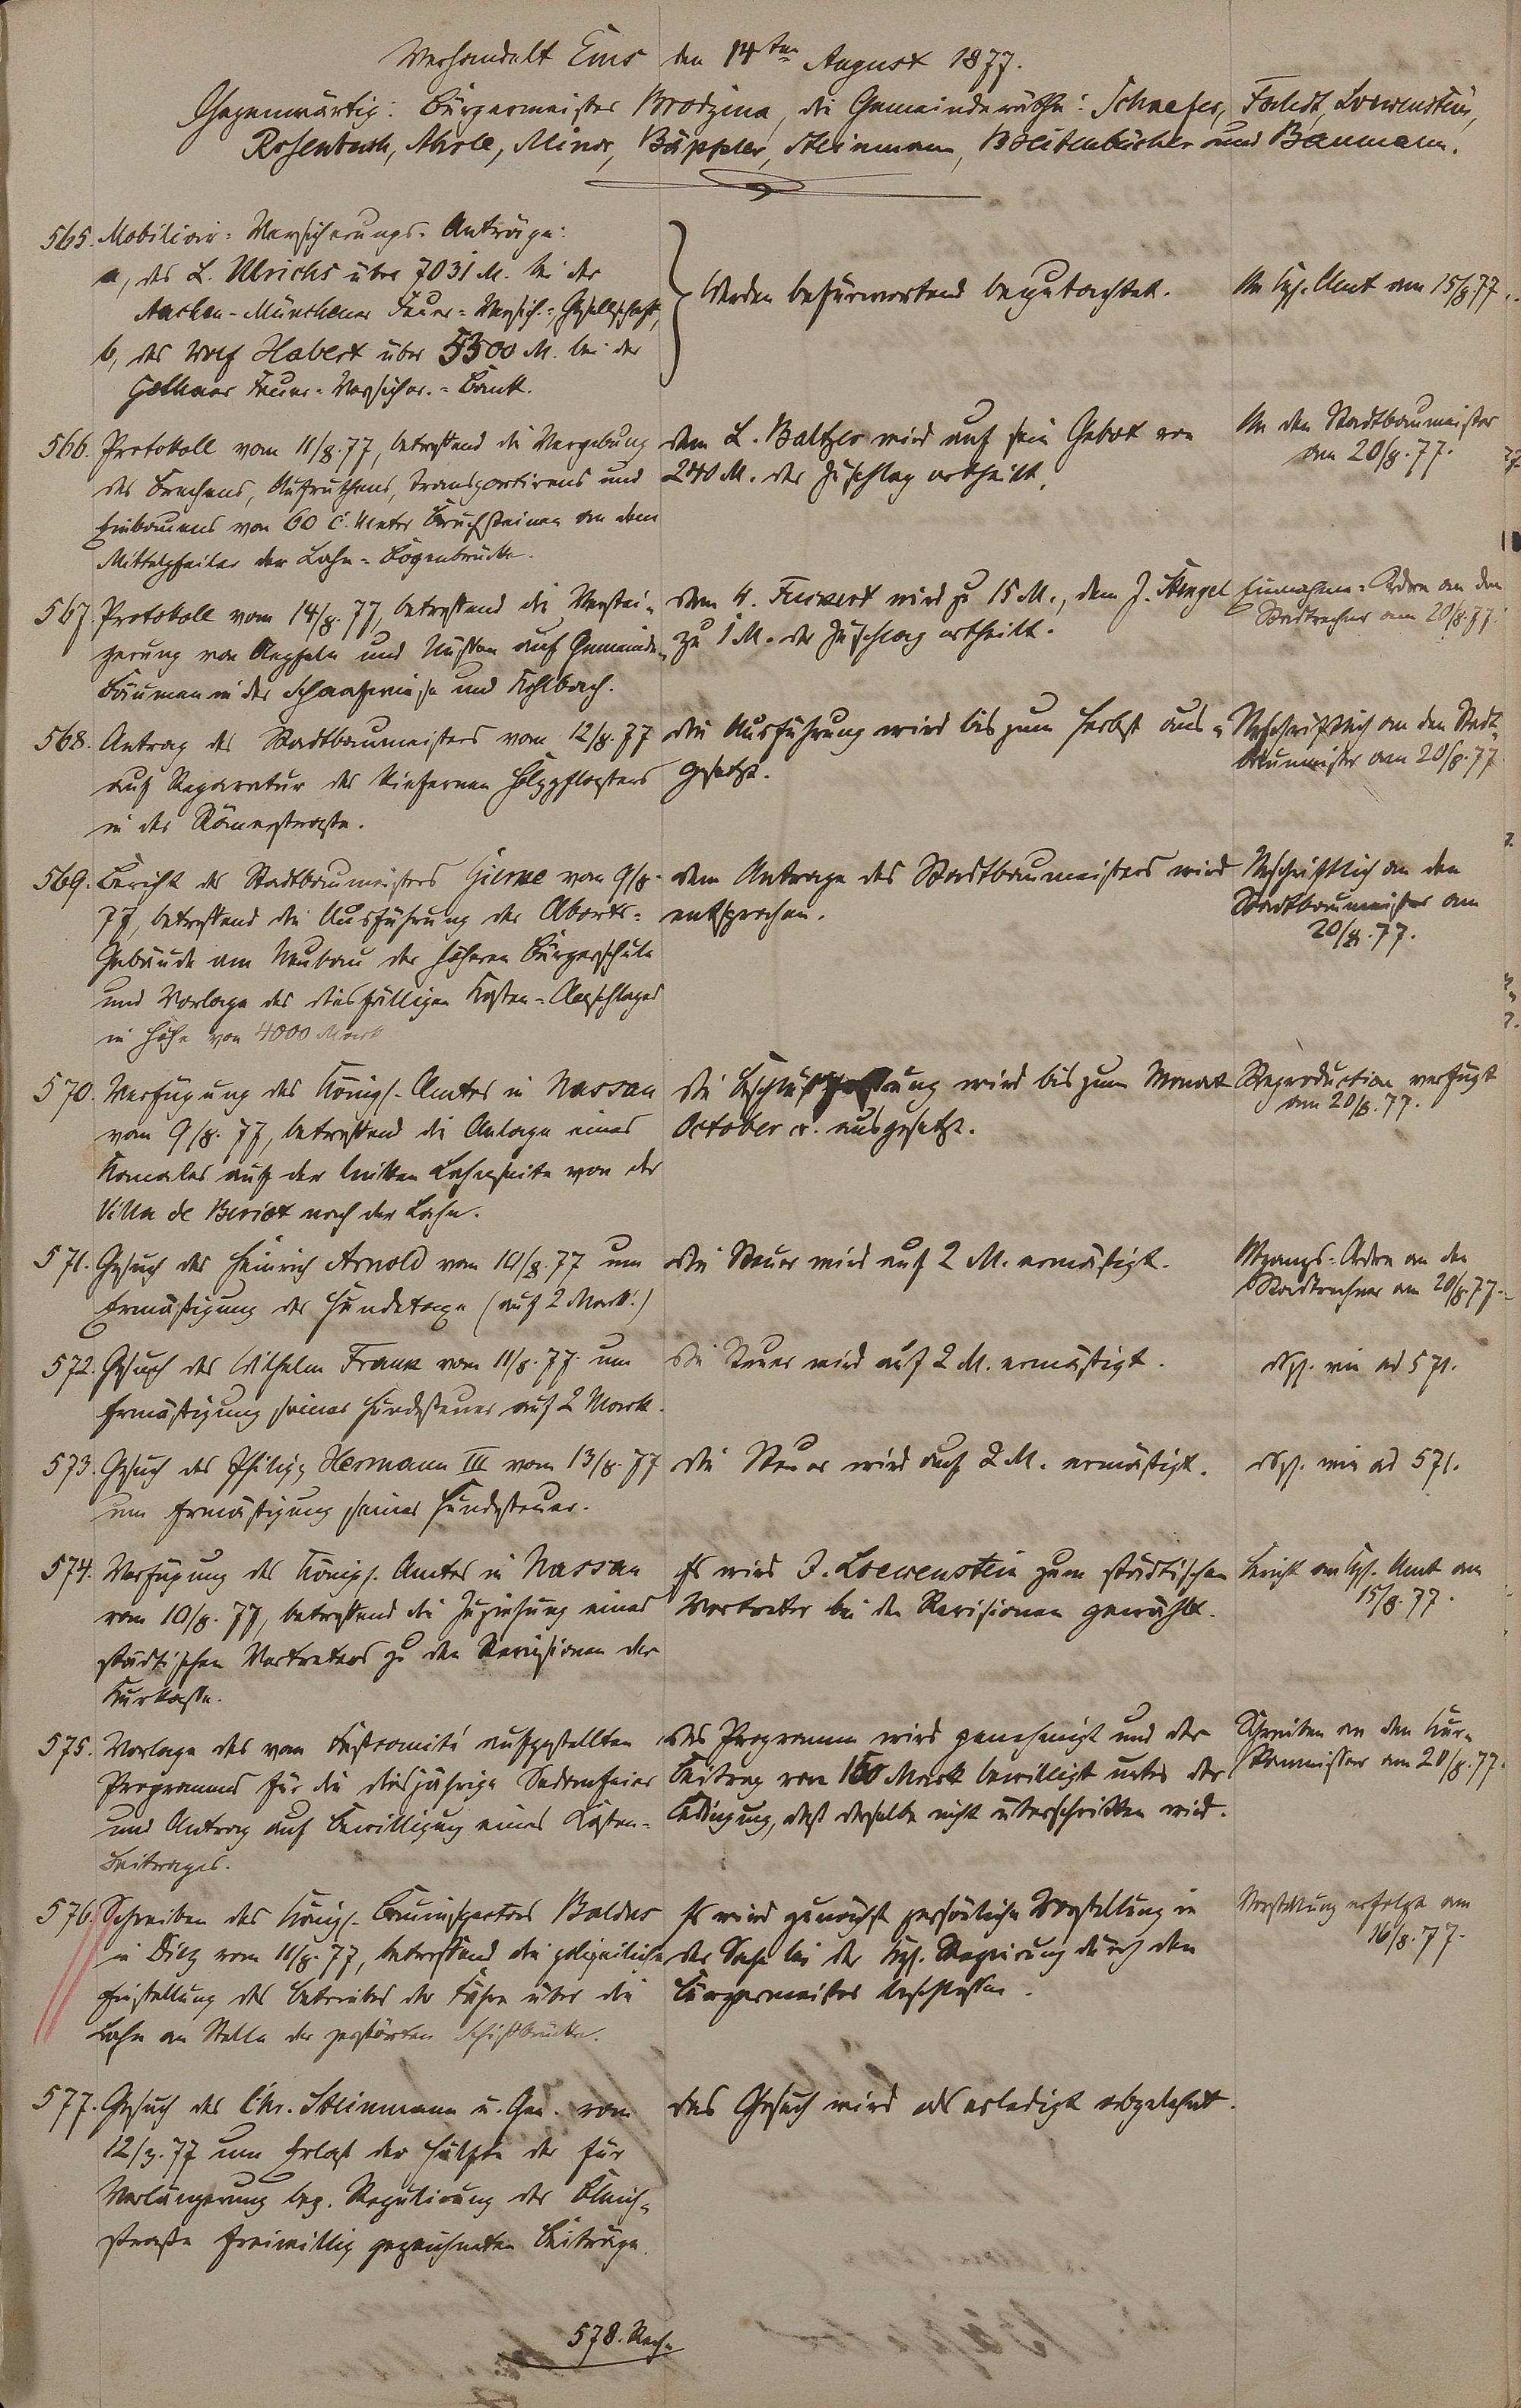 Verhandelt Ems den 14ten August 1877.
Gegenwärtig: Bürgermeister Brodzina, die Gemeinderäthe: Schaefer, Loewenstein,
Rosenbach, Minor, Bäppler, Steinmann, Breitenbücher und Baumann.
565. Mobiliar-Versicherungs-Anträge:
a, des L. Ulrichs über 7031 M. bei der
Aachen-Münchener Feuer-Versich.-Gesellschaft,
b, des Wolf Habert über 5500 M. bei der
Gothaer Feuer-Versicher.-Bank.
Werden befürwortend begutachtet.
An Kgl. Amt am 15/8.77.
566. Protokoll vom 11/8.77, betreffend die Vergebung
des Brechens, Aufruthens, Transportirens und
Einbauens von 60 c. Meter Bruchsteinen an dem
Mittelpfeiler der Lahn-Bogenbrücke.
Dem L. Baltzer wird auf sein Gebot von
240 M. der Zuschlag ertheilt.
An den Stadtbaumeister
am 20/8.77.
567. Protokoll vom 14/8.77, betreffend die Verstei-
gerung von Aepfeln und Nüssen auf Gemeinde-
Bäumen in der Schaafwiese und Kohlbach.
Dem H. wird zu 15 M., dem J. Stengel
zu 1 M. der Zuschlag ertheilt.
Einnahme-Ordre an den
Stadtrechner am 20/8.77.
568. Antrag des Stadtbaumeisters vom 12/8.77
auf Reparatur des kiefernen Holzpflasters
in der Römerstraße.
Die Ausführung wird bis zum Herbst aus-
gesetzt.
Abschriftlich an den Stadt-
baumeister am 20/8.77.
569. Bericht des Stadtbaumeisters vom 9/8.
77, betreffend die Ausführung der Aborts-
Gebäude am Neubau der höheren Bürgerschule
und Vorlage des diesfälligen Kosten-Anschlages
in Höhe von 4000 Mark
Dem Antrage des Stadtbaumeisters wird
entsprochen.
Abschriftlich an den
Stadtbaumeister am
20/8.77.
570. Verfügung des Königl. Amtes in Nassau
vom 9/8.77, betreffend die Anlage eines
Kanales auf der linken Lahnseite von der
Villa de Beriot nach der Lahn.
Die Beschlußfassung wird bis zum Monat
October cr. ausgesetzt.
Reproduction verfügt
am 20/8.77.
571. Gesuch des Heinrich Arnold vom 10/8.77 um
Ermäßigung der Hundetaxe (auf 2 Mark.)
Die Steuer wird auf 2 M. ermäßigt.
Abgangs-Ordre an den
Stadtrechner am 20/8.77.
572. Gesuch des Wilhelm Frank vom 11/8.77 um
Ermäßigung seiner Hundesteuer auf 2 Mark.
Die Steuer wird auf 2 M. ermäßigt.
Dsgl. wie ad 571.
573. Gesuch des Philipp Hermann III vom 13/8.77
um Ermäßigung seiner Hundesteuer.
Die Steuer wird auf 2 M. ermäßigt.
Dsgl. wie ad 571.
574. Verfügung des Königl. Amtes in Nassau
vom 10/8.77, betreffend die Zuziehung eines
städtischen Vertreters zu den Revisionen der
Kurkasse.
Es wird J. Loewenstein zum städtischen
Vertreter bei den Revisionen gewählt.
Bericht an Kgl. Amt am
15/8.77.
575. Vorlage des vom Festcomité aufgestellten
Programms für die diesjährige Sedanfeier
und Antrag auf Bewilligung eines Kosten-
Beitrages.
Das Programm wird genehmigt und der
Beitrag von 150 Mark bewilligt unter der
Bedingung, daß derselbe nicht überschritten wird.
Schreiben an den Kur-
Kommissar am 20/8.77.
576. Schreiben des Königl. Bauinspectors Baldus
in Dietz vom 11/8.77, betreffend die polizeiliche
Einstellung des Betriebes der Fähre über die
Lahn an Stelle der zerstörten Schiffbrücke.
Es wird zunächst persönliche Vorstellung in
der Sache bei der Kgl. Regierung durch den
Bürgermeister beschlossen.
Vorstellung erfolgte am
16/8.77.
577. Gesuch des Chr. Steinmann u. Gen. vom
12/8.77 um Erlaß der Hälfte der für
Verlängerung bez. Regulirung der Bleich-
straße freiwillig gezeichneten Beiträge.
Das Gesuch wird als erledigt abgelehnt.
578. Rech-